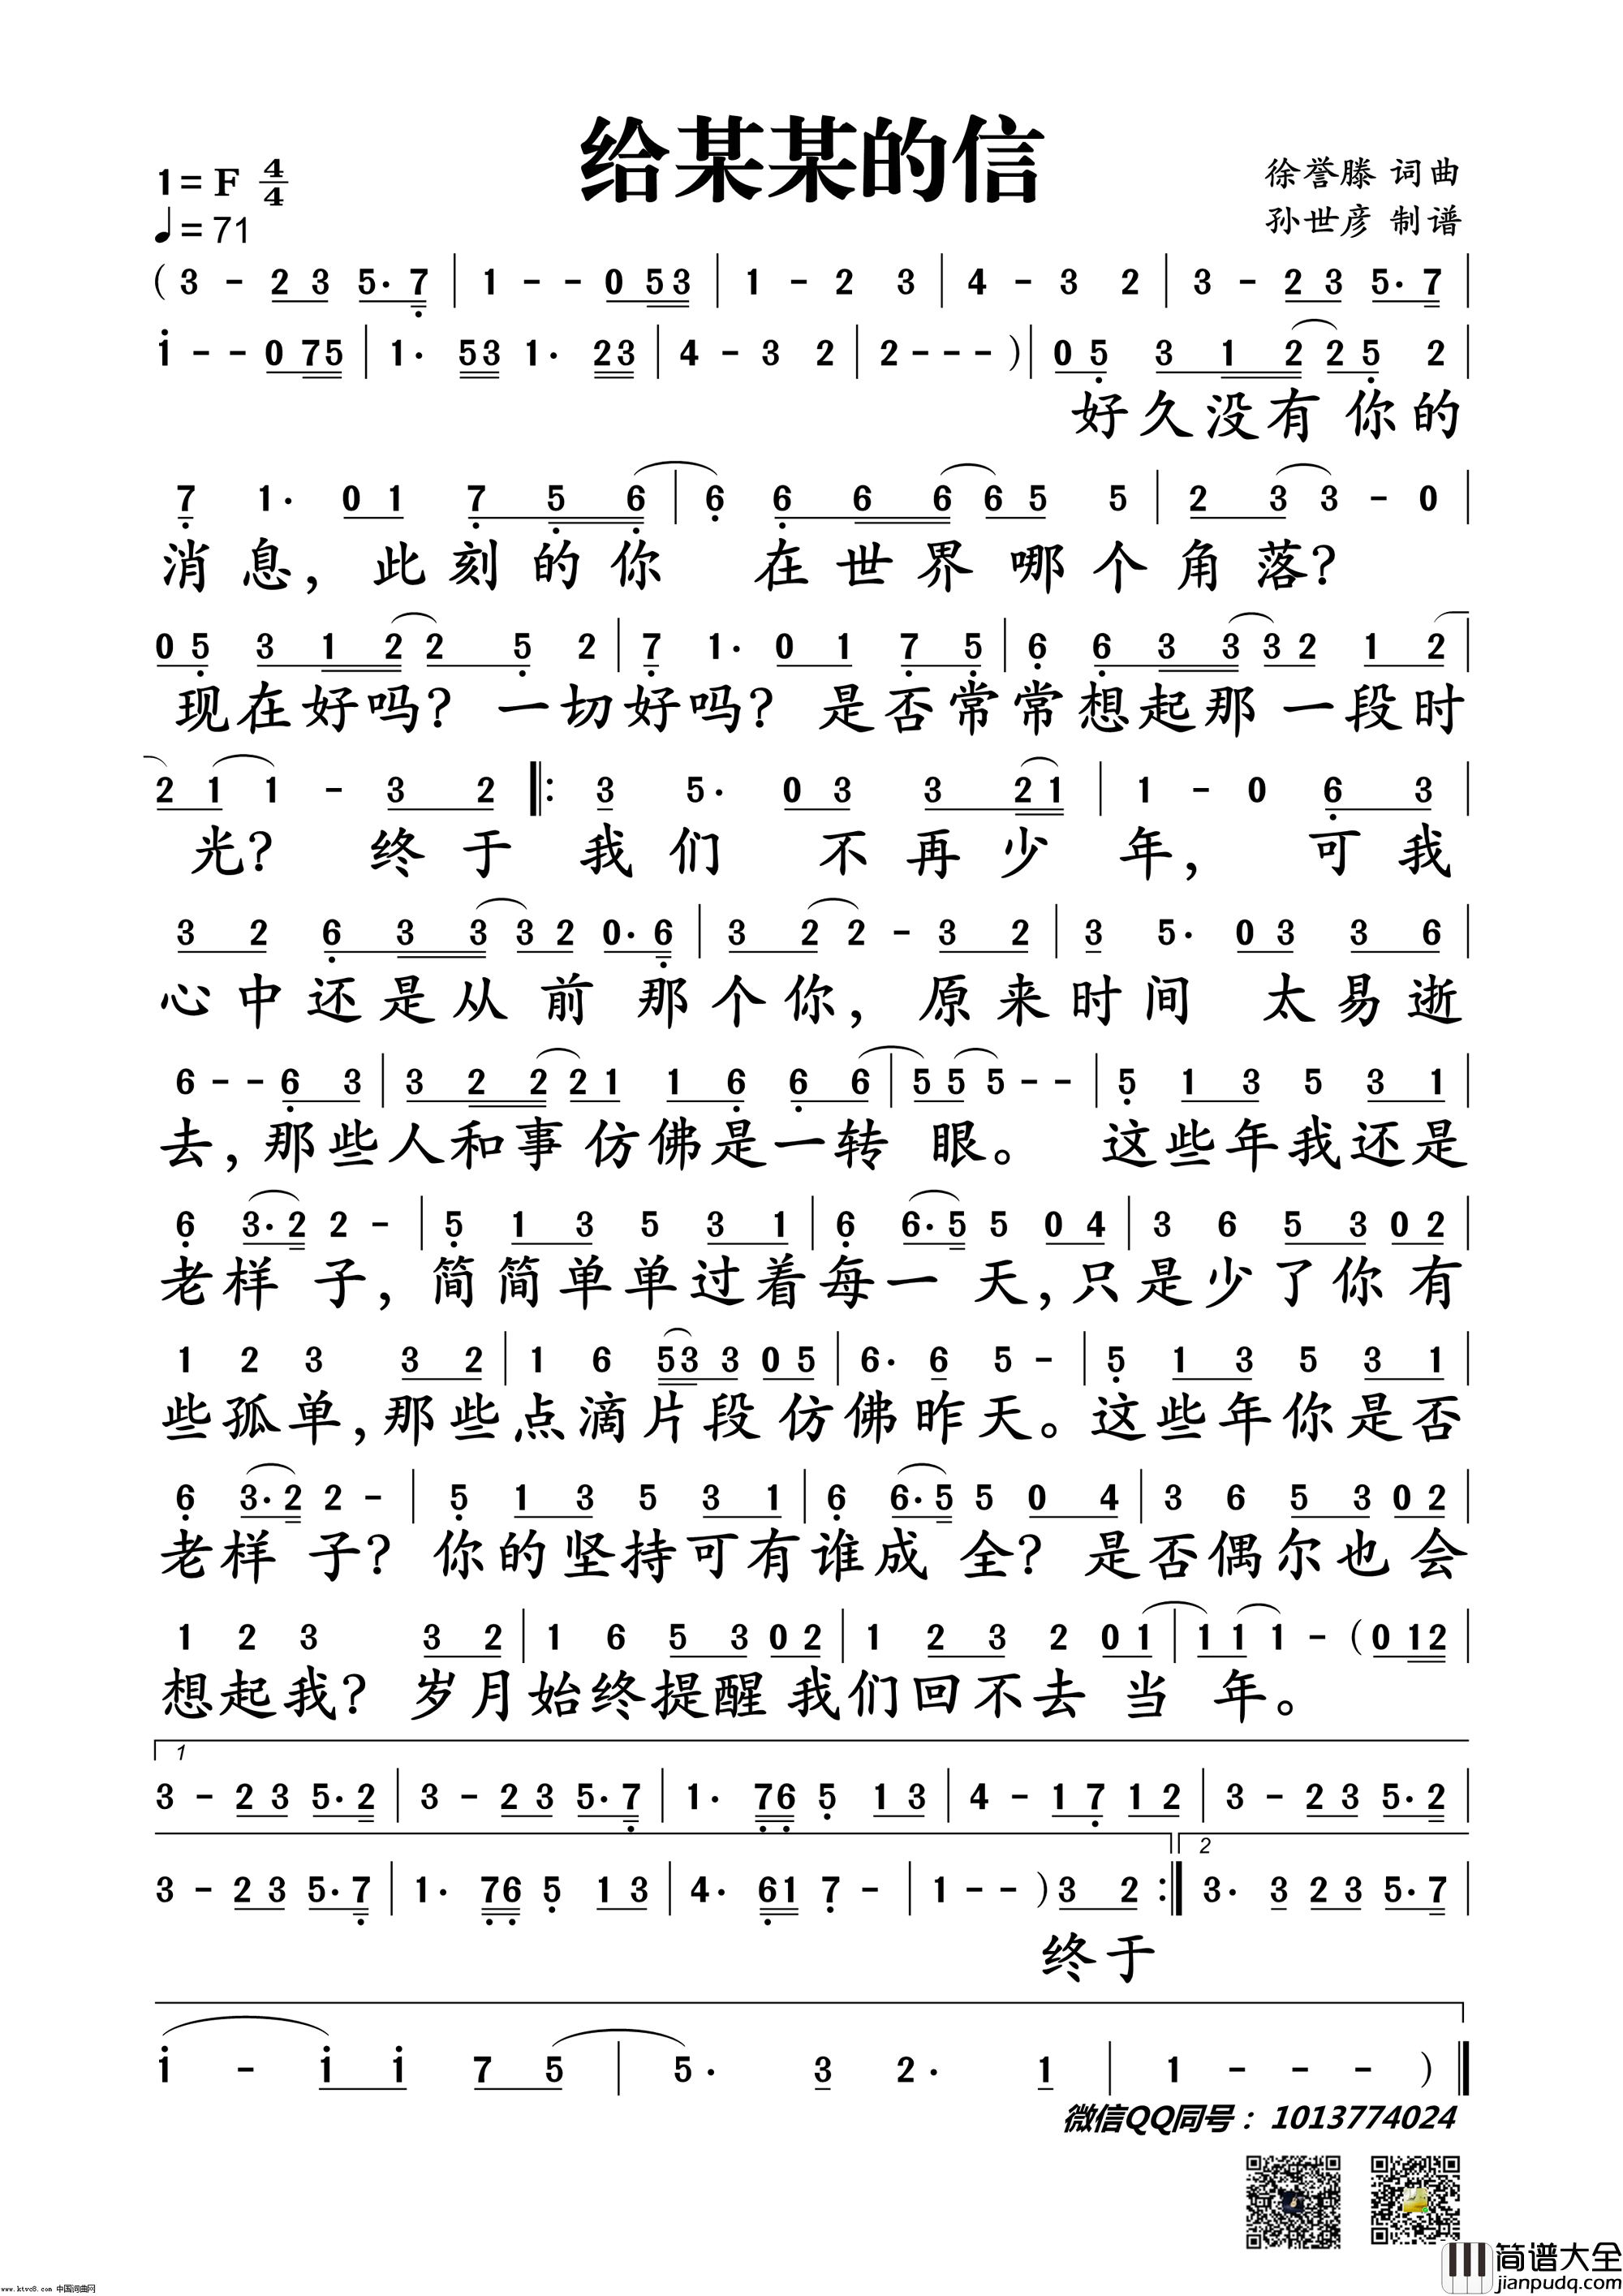 给某某的信
1= F 4/4
♩= 71
徐誉滕 词曲
孙世彦 制谱
( 3 - 2 3 5· 7 | 1 - - 0 5 3 | 1 - 2 3 | 4 - 3 2 | 3 - 2 3 5· 7 |
1 - - 0 7 5 | 1· 5 3 1· 2 3 | 4 - 3 2 | 2 - - - ) | 0 5 3 1 2 2 5 2 |
好久没有你的
7 1· 0 1 7 5 6 | 6 6 6 6 6 5 5 | 2 3 3 - 0 |
消息，此刻的你 在世界哪个角落？
0 5 3 1 2 2 5 2 | 7 1· 0 1 7 5 | 6 6 3 3 3 2 1 2 |
现在好吗？ 一切好吗？ 是否常常想起那一段时
2 1 1 - 3 2 ‖: 3 5· 0 3 3 2 1 | 1 - 0 6 3 |
光？ 终于我们 不再少年，可我
3 2 6 3 3 3 2 0· 6 | 3 2 2 - 3 2 | 3 5· 0 3 3 6 |
心中还是从前那个你，原来时间太易逝
6 - - 6 3 | 3 2 2 2 1 1 6 6 6 | 5 5 5 - - | 5 1 3 5 3 1 |
去，那些人和事仿佛是一转眼。 这些年我还是
6 3· 2 2 - | 5 1 3 5 3 1 | 6 6· 5 5 0 4 | 3 6 5 3 0 2 |
老样子，简简单单过着每一天，只是少了你有
1 2 3 3 2 | 1 6 5 3 3 0 5 | 6· 6 5 - | 5 1 3 5 3 1 |
些孤单，那些点滴片段仿佛昨天。这些年你是否
6 3· 2 2 - | 5 1 3 5 3 1 | 6 6· 5 5 0 4 | 3 6 5 3 0 2 |
老样子？你的坚持可有谁成全？是否偶尔也会
1 2 3 3 2 | 1 6 5 3 0 2 | 1 2 3 2 0 1 | 1 1 1 - ( 0 1 2 |
想起我？岁月始终提醒我们回不去当年。
1
3 - 2 3 5· 2 | 3 - 2 3 5· 7 | 1· 7 6 5 1 3 | 4 - 1 7 1 2 | 3 - 2 3 5· 2 |
2
3 - 2 3 5· 7 | 1· 7 6 5 1 3 | 4· 6 1 7 - | 1 - - ) 3 2 :‖ 3· 3 2 3 5· 7 |
终于
1 - 1 1 7 5 | 5· 3 2· 1 | 1 - - - ) ‖
微信QQ同号： 1013774024
简谱大全
jianpudq.com
www.ktvc8.com 中国词曲网